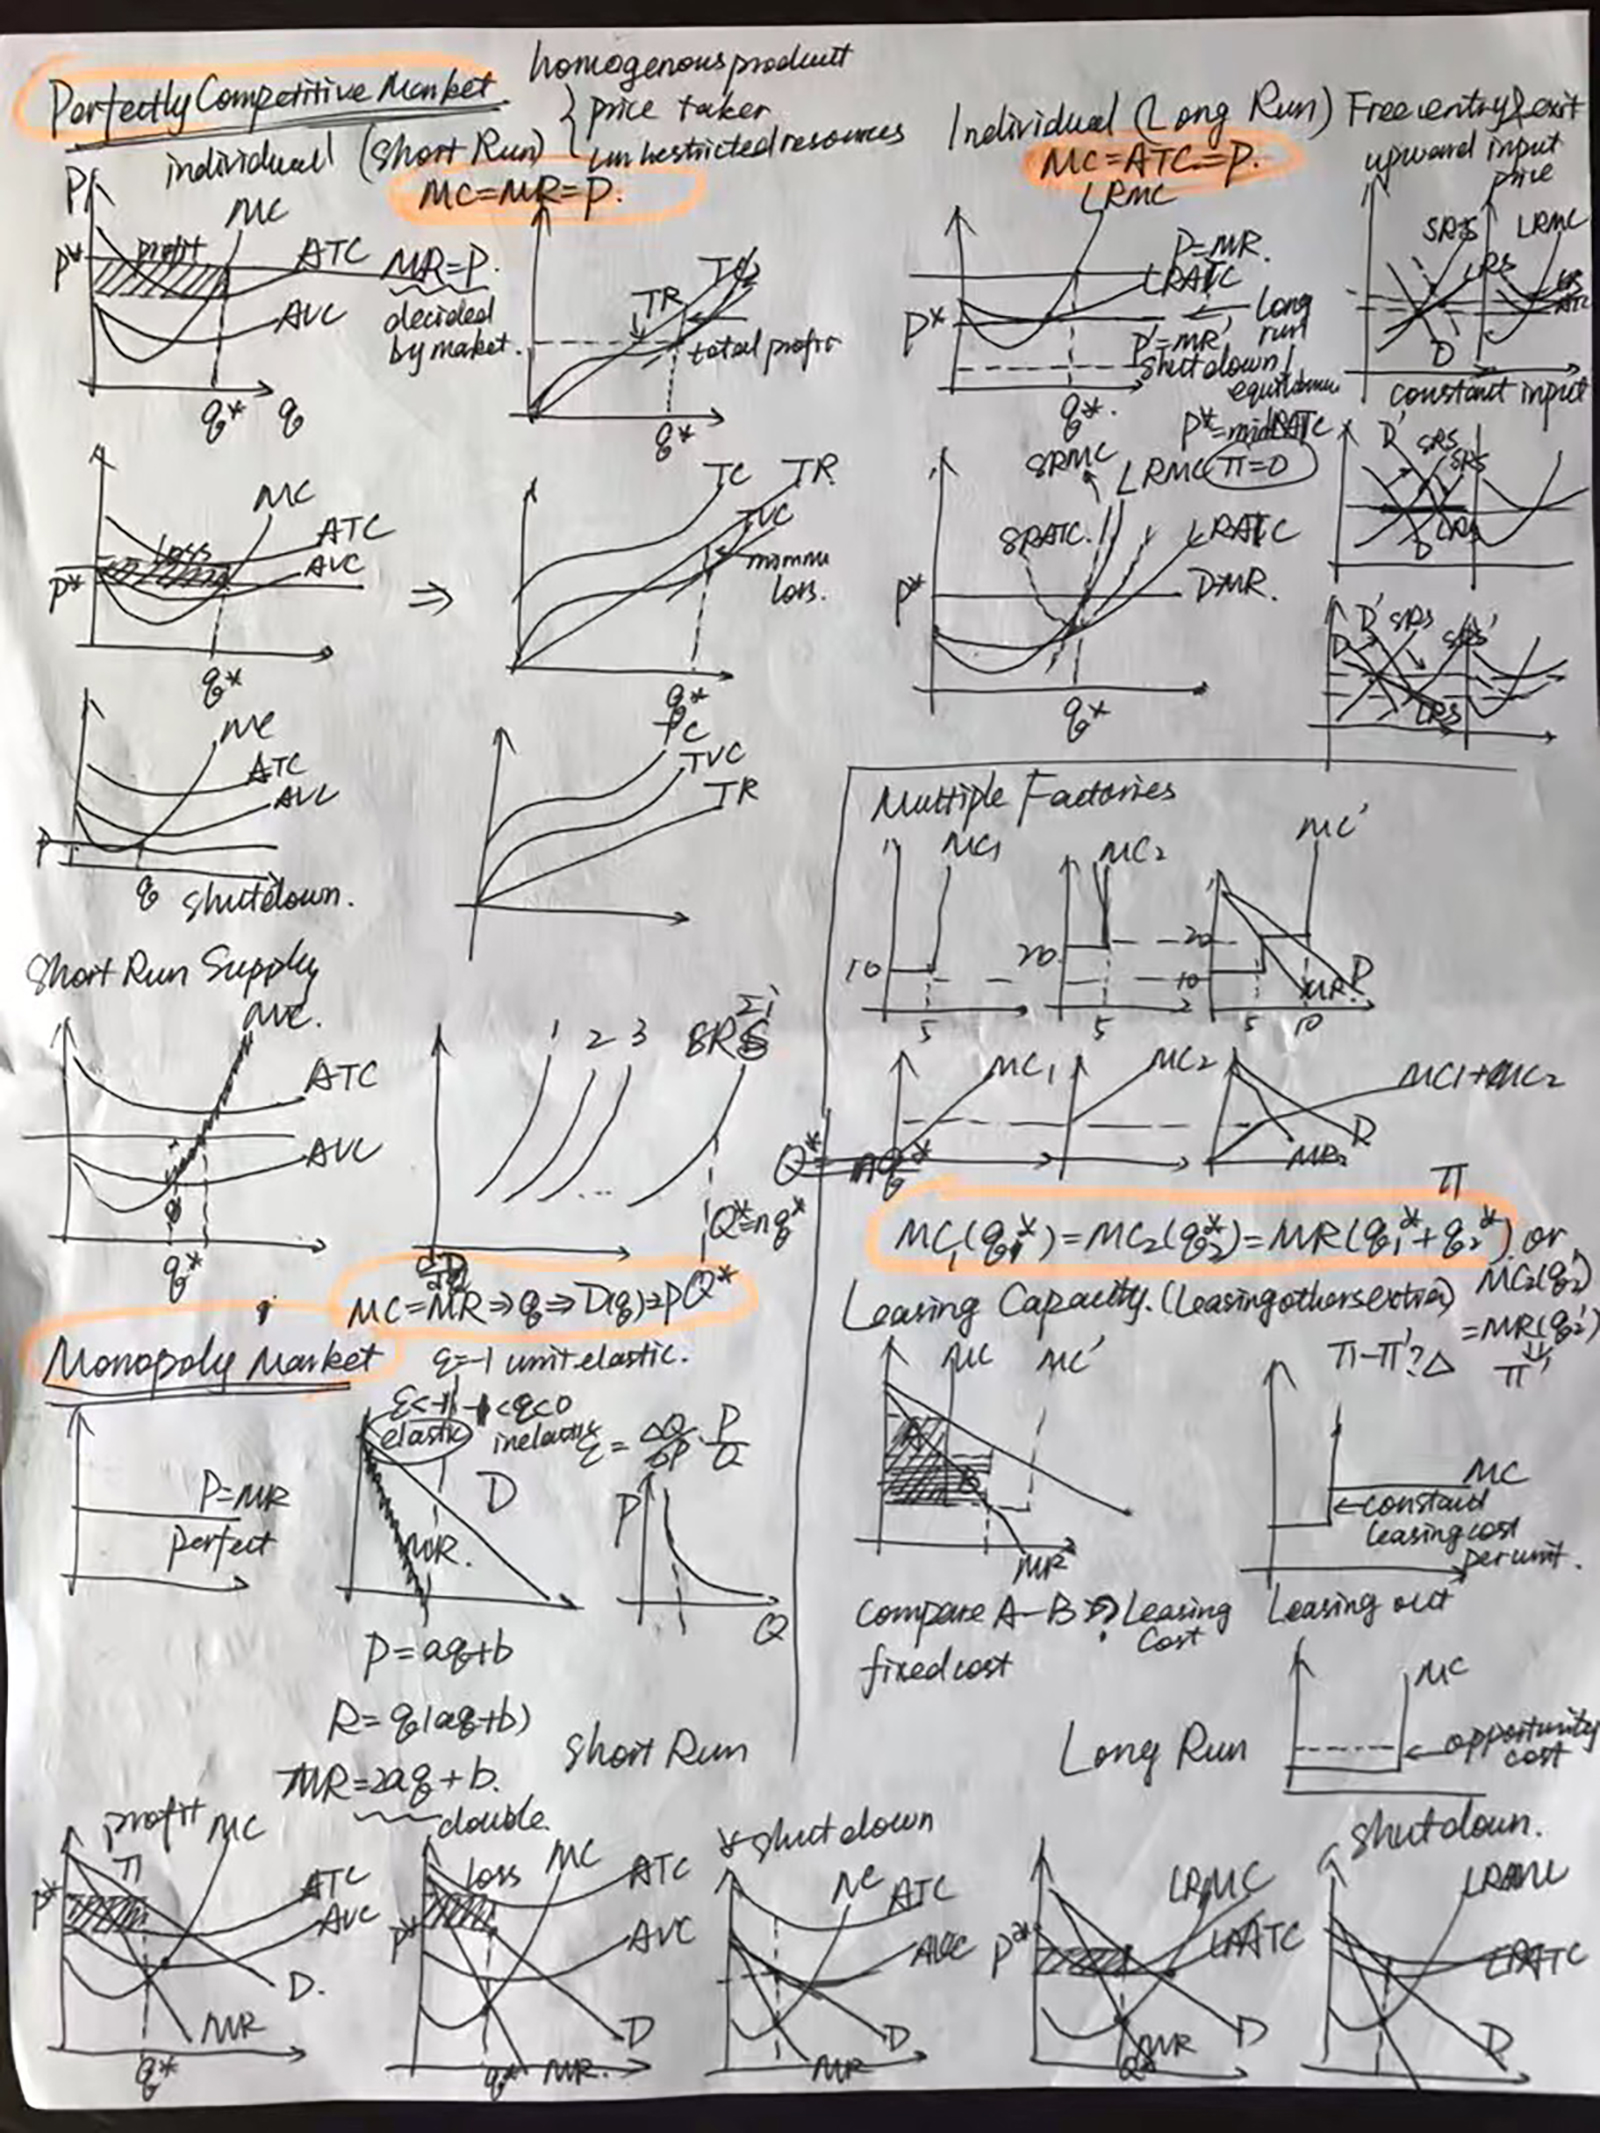 Perfectly Competitive Market
homogenous product
price taker
unrestricted resources
individual (Short Run)
MC=MR=P.
P
MC
P*
profit
ATC
AVC
MR=P.
decided
by market.
q*
q
TR
total profit
q*
MC
ATC
AVC
Loss
P*
q*
⇒
TC
TR
TVC
loss.
q*
MC
ATC
AVC
P
q
shutdown.
TC
TVC
TR
Individual (Long Run)
Free entry & exit
MC=ATC=P.
LRMC
P=MR.
LRATC
P*
Long
run
P'=MR'
shutdown/
q*.
P*=midATC
π=0
SRMC
LRMC
SRATC.
LRATC
P*
D=MR.
q*
upward input
price
SRS
LRMC
LRS
D
constant input
D'
SRS
SRS
LRS
D
D'
D
SRS
SRS'
LRS
Short Run Supply
MC.
ATC
AVC
q*
1 2 3
SRS
Σi
...
Q*=nq*
Multiple Factories
MC1
10
5
MC2
20
5
MC'
20
10
D
MR.
5 10
MC1
MC2
MC1+MC2
D
Q*=nq*
π
MC1(q1*)=MC2(q2*)=MR(q1*+q2*) or
MC2(q2')
=MR(q2')
⇓
π'
π-π'?△
Leasing Capacity. (Leasing others extra)
MC
MC'
A
B
MR
compare A-B ⇒? Leasing
Cost
fixed cost
MC
←constant
leasing cost
per unit.
Leasing out
MC
← opportunity
cost
MC=MR⇒q⇒D(q)⇒P Q*
Monopoly Market
ε=-1 unit elastic.
ε<-1
-1<ε<0
elastic
inelastic
ε= ΔQ/ΔP · P/Q
P=MR
perfect
D
MR.
P
Q
P=aq+b
R=q(aq+b)
MR=2aq+b.
double.
Short Run
profit
π
MC
P*
ATC
AVC
D.
MR
q*
loss
MC
ATC
P*
AVC
D
MR.
q*
shut down
MC
ATC
AVC
D
MR
Long Run
LRMC
P*
LRATC
D
MR
shutdown.
LRMC
LRATC
D